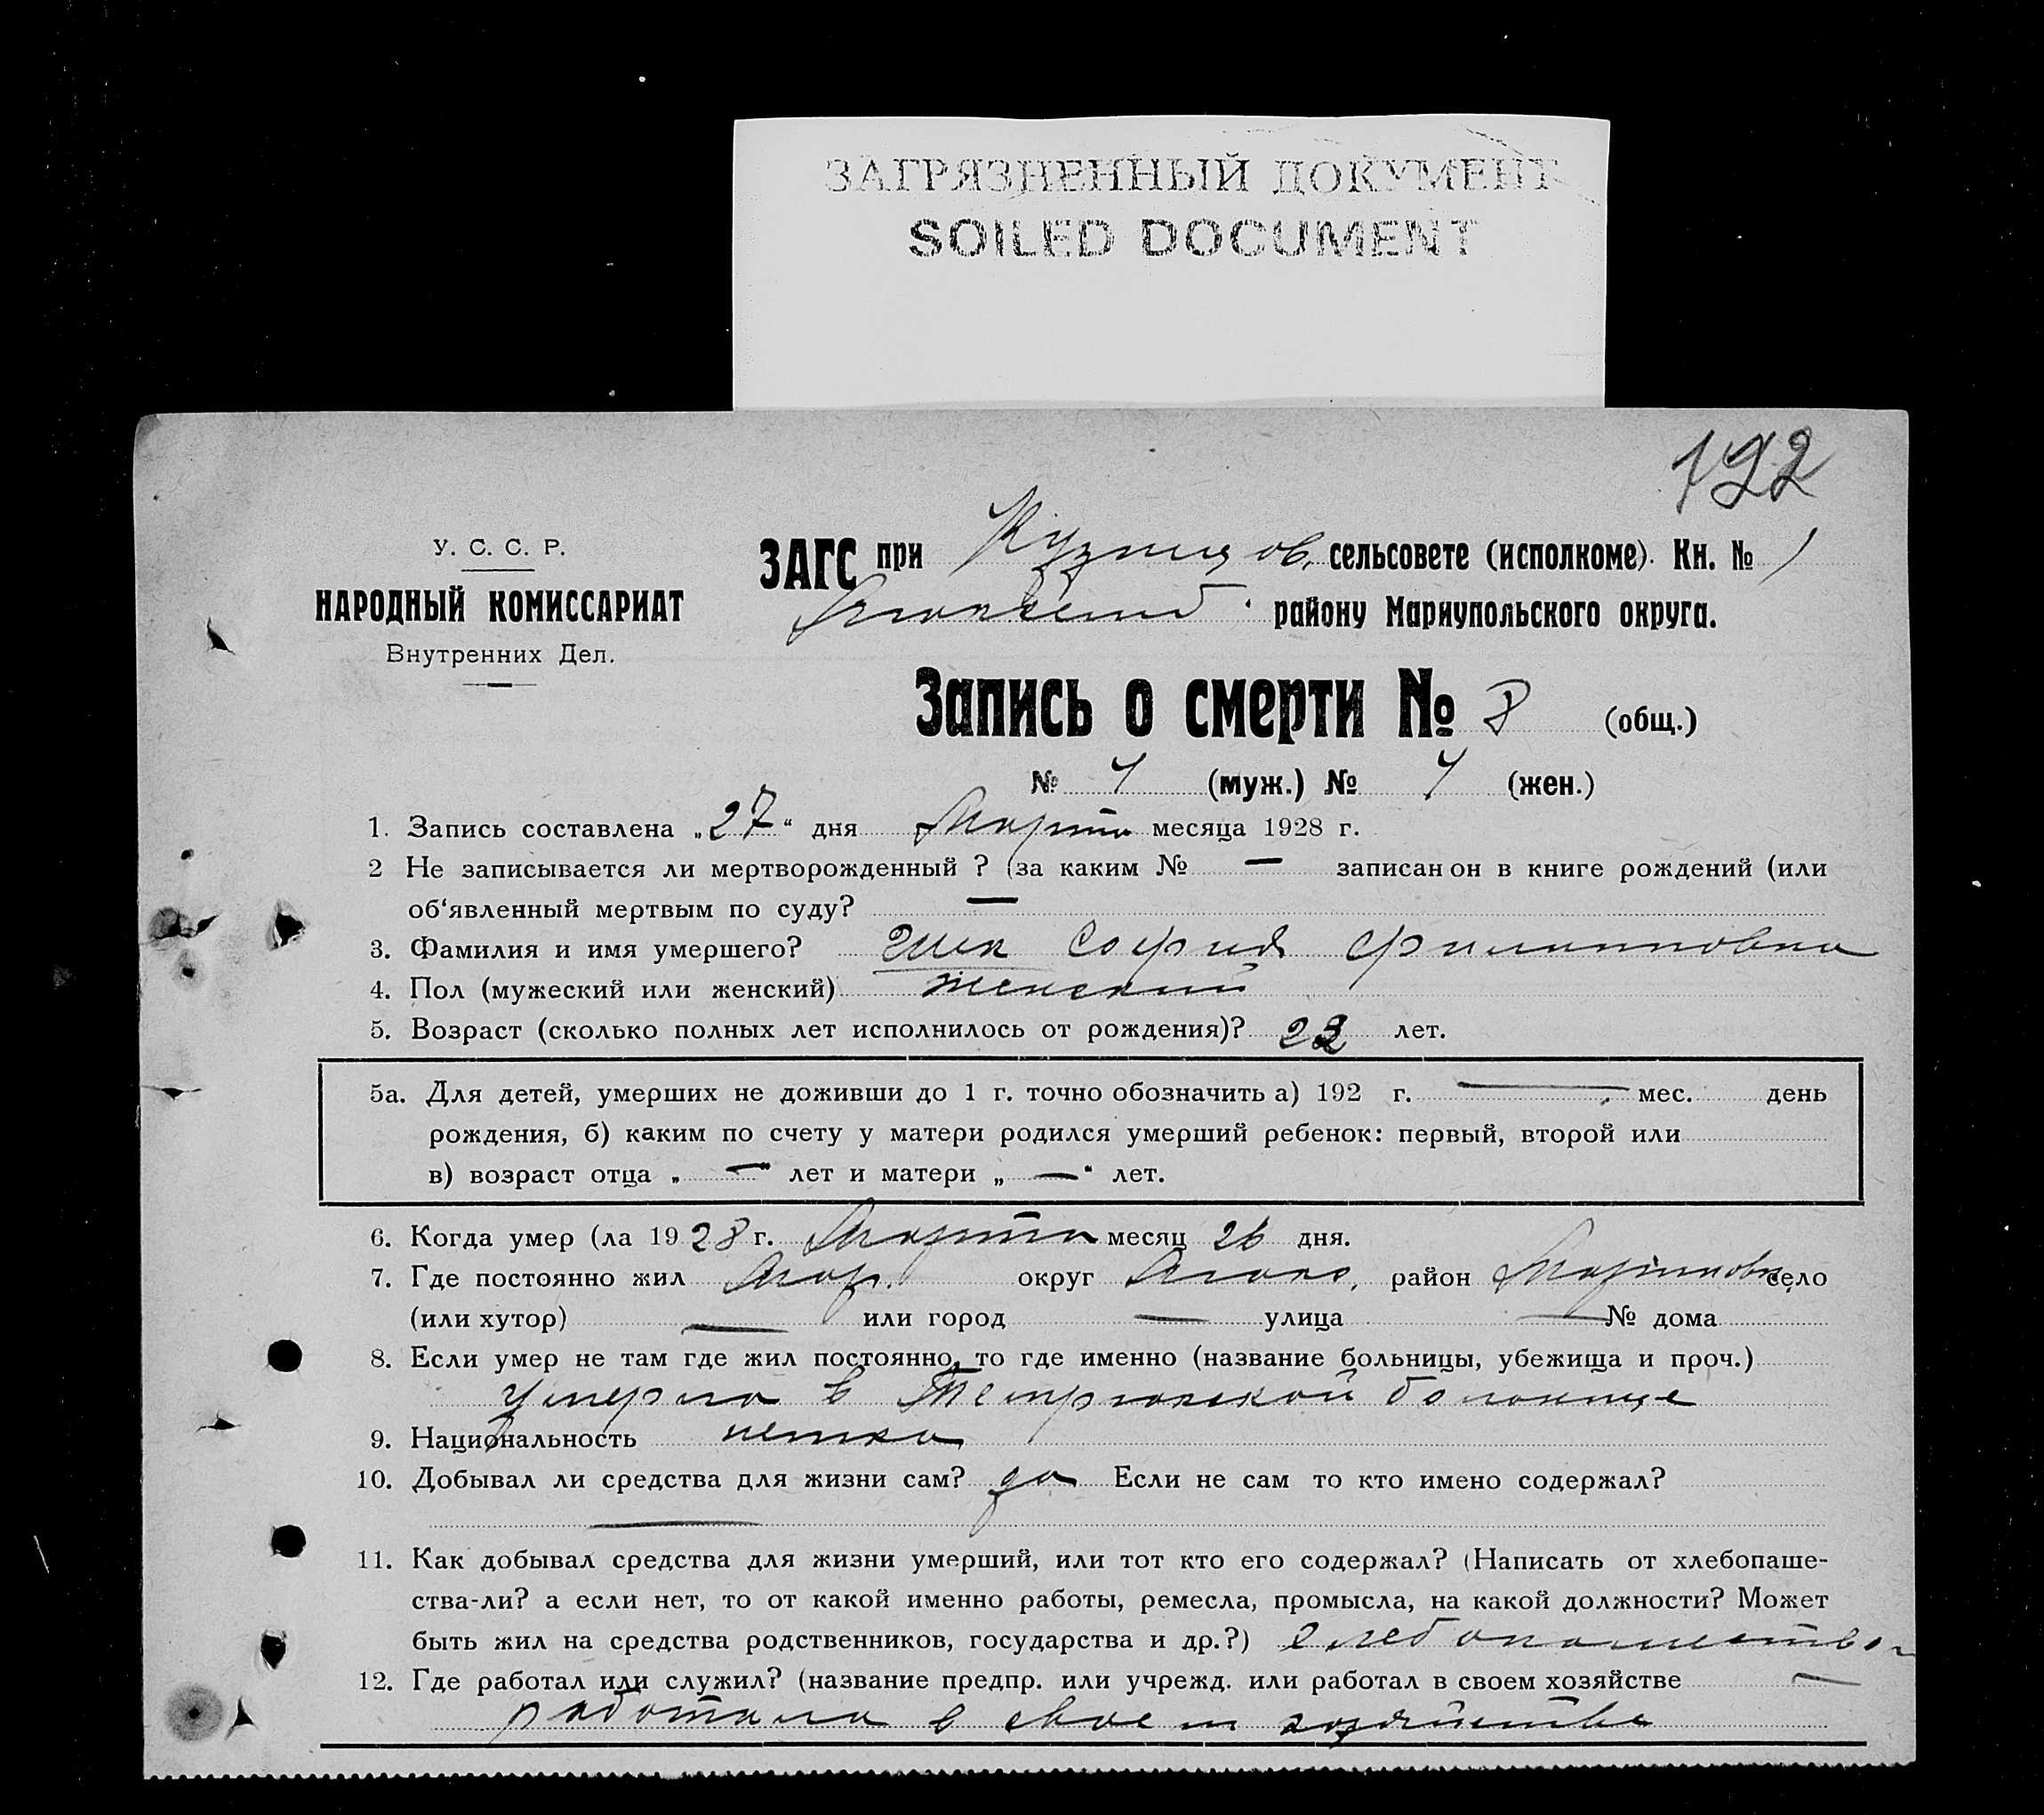 ЗАГРЯЗНЕННЫЙ ДОКУМЕНТ
SOILED DOCUMENT
192
У. С. С. Р.
НАРОДНЫЙ КОМИССАРИАТ
Внутренних Дел.
ЗАГС при Кузнецов. сельсовете (исполкоме). Кн. № 1
району Мариупольского округа.
Запись о смерти № 8 (общ.)
№ 4 (муж.) № 4 (жен.)
1. Запись составлена „27“ дня Марта месяца 1928 г.
2 Не записывается ли мертворожденный ? (за каким № — записан он в книге рождений (или
об‘явленный мертвым по суду? —
3. Фамилия и имя умершего? София Филипповна
4. Пол (мужеский или женский) женский
5. Возраст (сколько полных лет исполнилось от рождения)? 23 лет.
5а. Для детей, умерших не доживши до 1 г. точно обозначить а) 192 г. — мес. день
рождения, б) каким по счету у матери родился умерший ребенок: первый, второй или
в) возраст отца „ — “ лет и матери „ — “ лет.
6. Когда умер (ла 1928 г. Марта месяц 26 дня.
7. Где постоянно жил Мар. округ район село
(или хутор) — или город — улица — № дома
8. Если умер не там где жил постоянно, то где именно (название больницы, убежища и проч.)
умерла в больнице
9. Национальность немка
10. Добывал ли средства для жизни сам? да Если не сам то кто имено содержал?
—
11. Как добывал средства для жизни умерший, или тот кто его содержал? (Написать от хлебопаше-
ства-ли? а если нет, то от какой именно работы, ремесла, промысла, на какой должности? Может
быть жил на средства родственников, государства и др.?) хлебопашеством
12. Где работал или служил? (название предпр. или учрежд. или работал в своем хозяйстве —
работала в своем хозяйстве